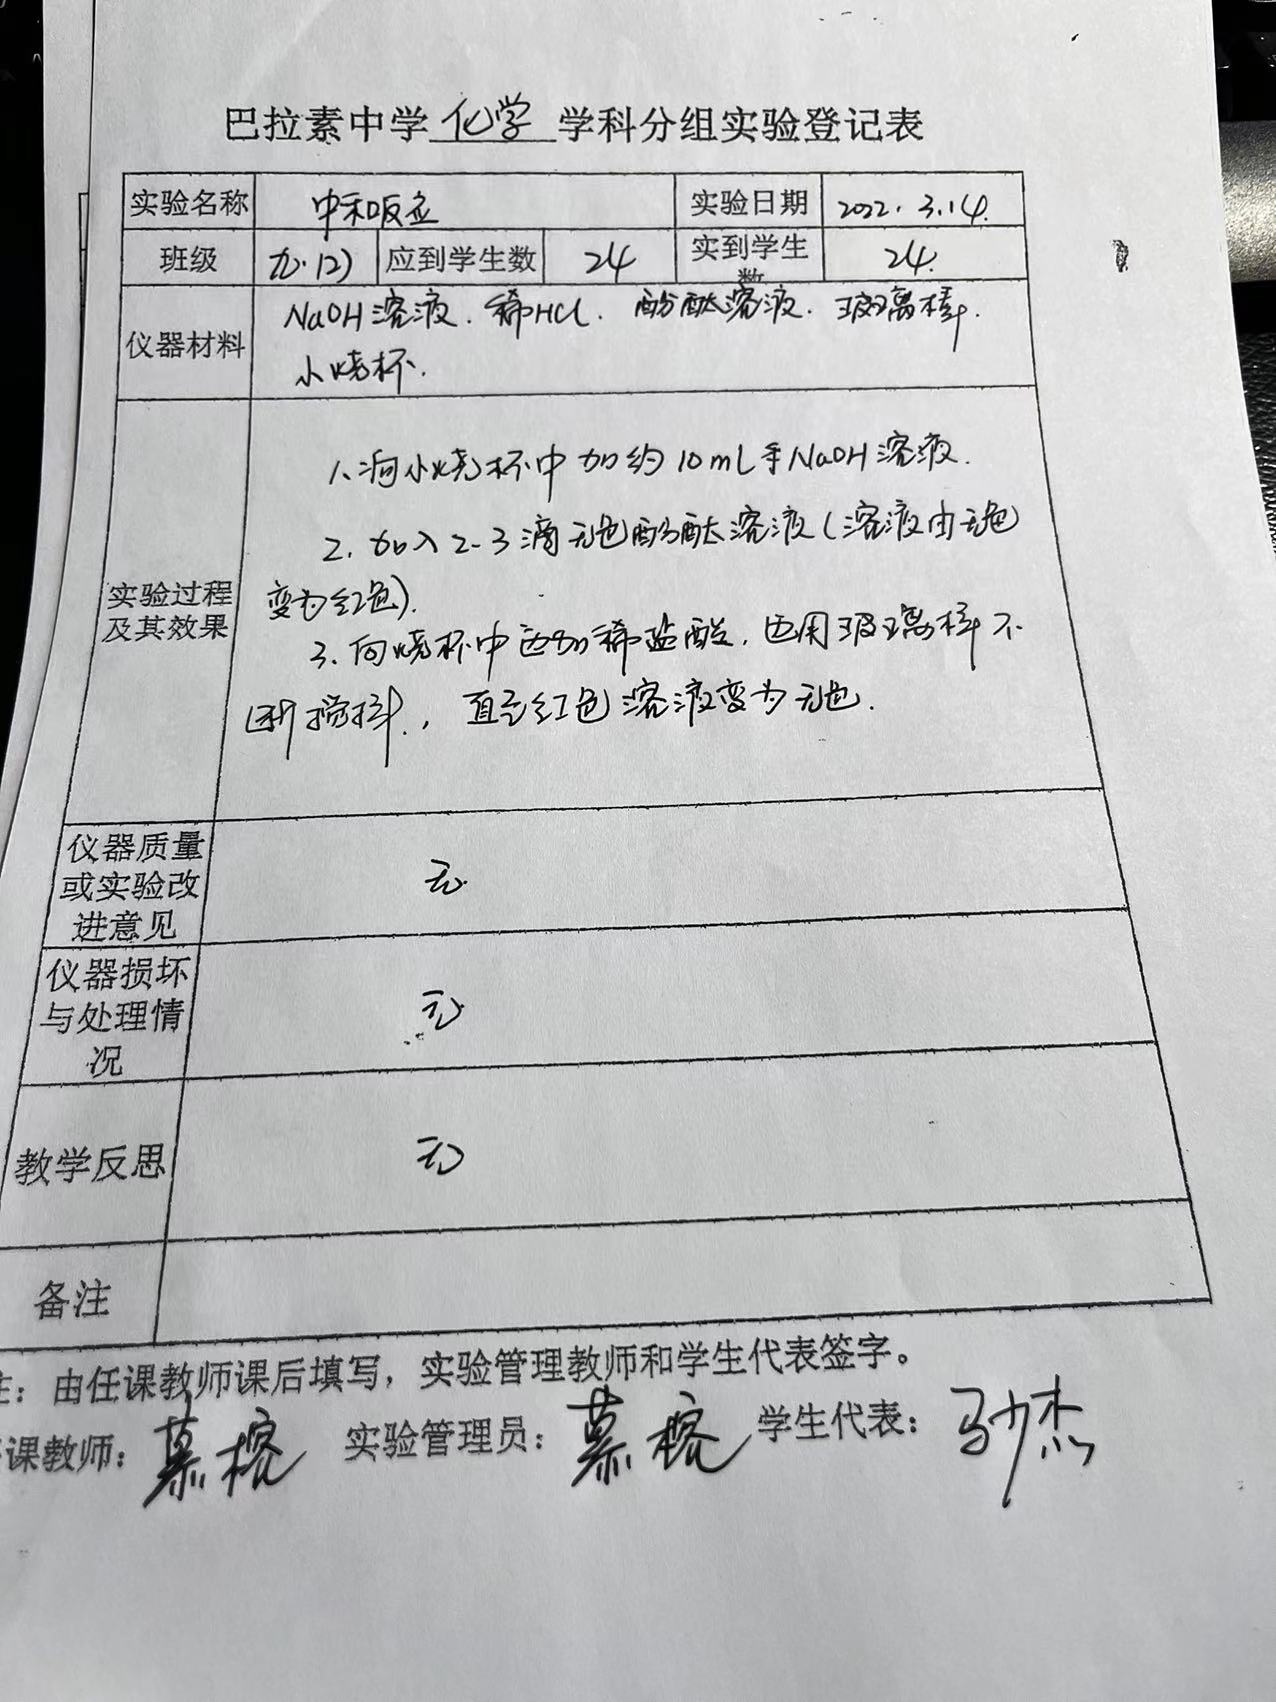 巴拉素中学 化学 学科分组实验登记表
实验名称 中和反应 实验日期 2022.3.14.
班级 九.(2) 应到学生数 24 实到学生数 24.
仪器材料 NaOH溶液.稀HCl.酚酞溶液.玻璃棒.
小烧杯.
实验过程及其效果
1.向小烧杯中加约10mL NaOH溶液.
2.加入2-3滴无色酚酞溶液(溶液由无色
变为红色).
3.向烧杯中边加稀盐酸.边用玻璃棒不
断搅拌.,直至红色溶液变为无色.
仪器质量
或实验改
进意见
无.
仪器损坏
与处理情
况
无
教学反思 无
备注
注:由任课教师课后填写,实验管理教师和学生代表签字。
课教师: 慕榕 实验管理员: 慕榕 学生代表: 马少杰